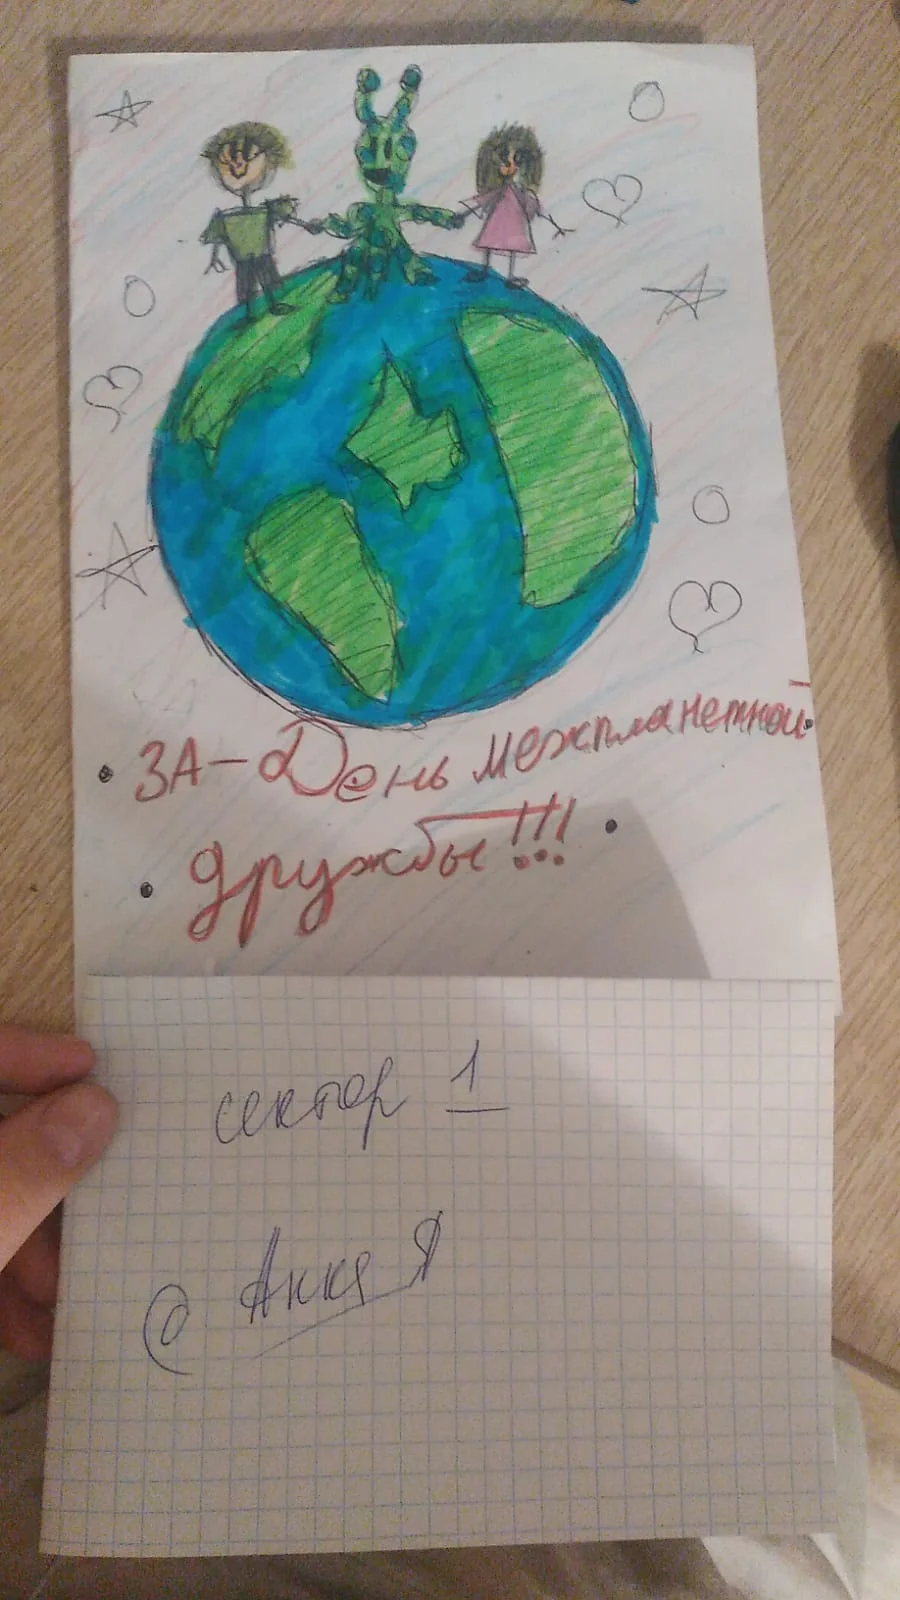 • ЗА – День межпланетной •
• дружбы!!! •
сектор 1
@ Анна Я